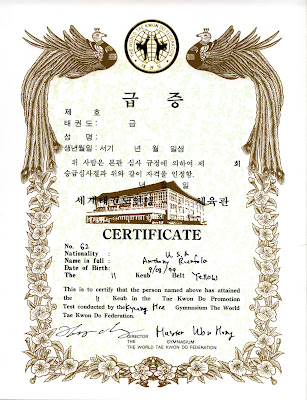 급 증
제 호
태 권 도 : 급
성 명 :
생년월일 : 서기 년 월 일생
위 사람은 본관 심사 규정에 의하여 제 회
승급심사결과 위와 같이 자격을 인정함.
년 월 일
세계 체육관
CERTIFICATE
No. 62
Nationality : U.S.A
Name in full : Anthony
Date of Birth: 9/08/99
The 11 Keub Belt Yellow
This is to certify that the person named above has attained
the 11 Keub in the Tae Kwon Do Promotion
Test conducted by the Kyung Hee Gymnasium The World
Tae Kwon Do Federation.
DIRECTOR Master Won Hong
THE GYMNASIUM
THE WORLD TAE KWON DO FEDERATION